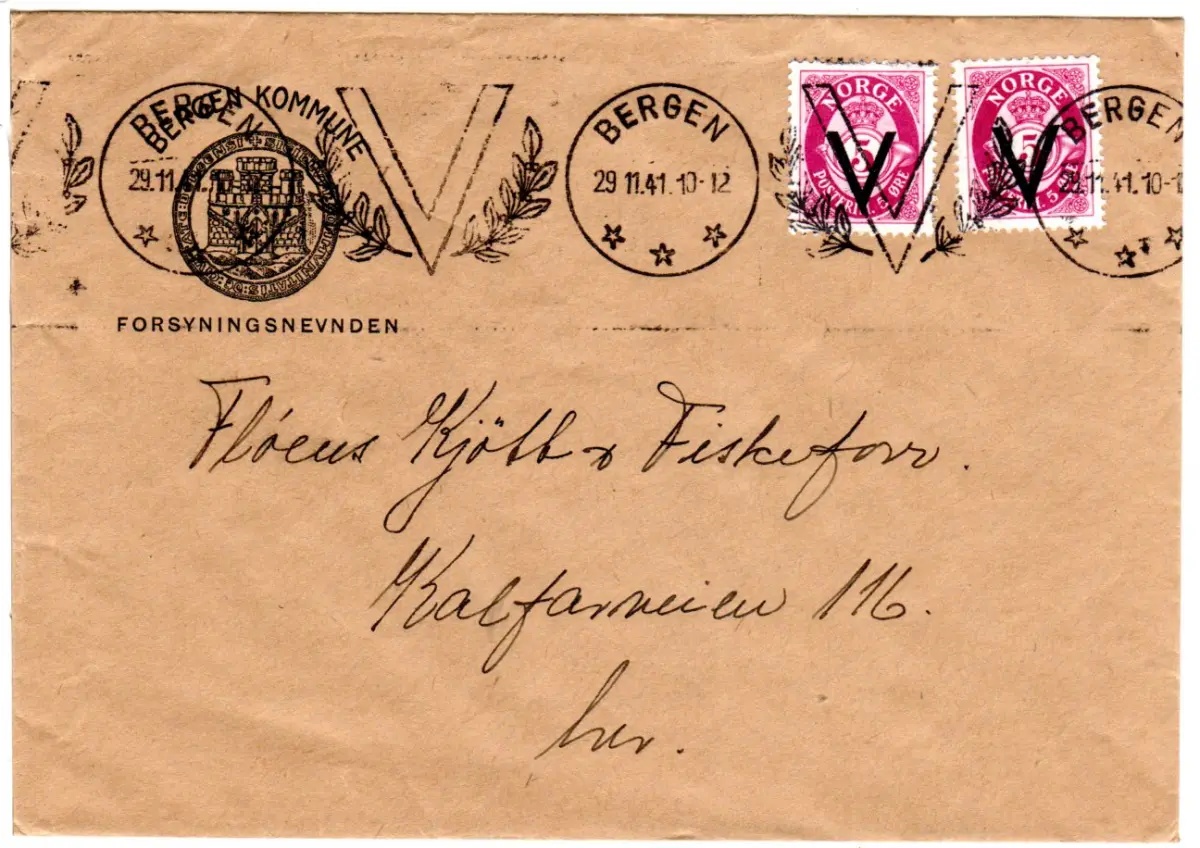 BERGEN
29.11.41.
BERGEN KOMMUNE
BERGEN
29.11.41.10-12
BERGEN
29.11.41.10-1
V
V
V
V
NORGE
V
5
POSTFRIM. 5 ØRE
NORGE
V
5
5 ØRE
FORSYNINGSNEVNDEN
Flóens Kjött & Fiskeforr.
Kalfarveien 116.
her.